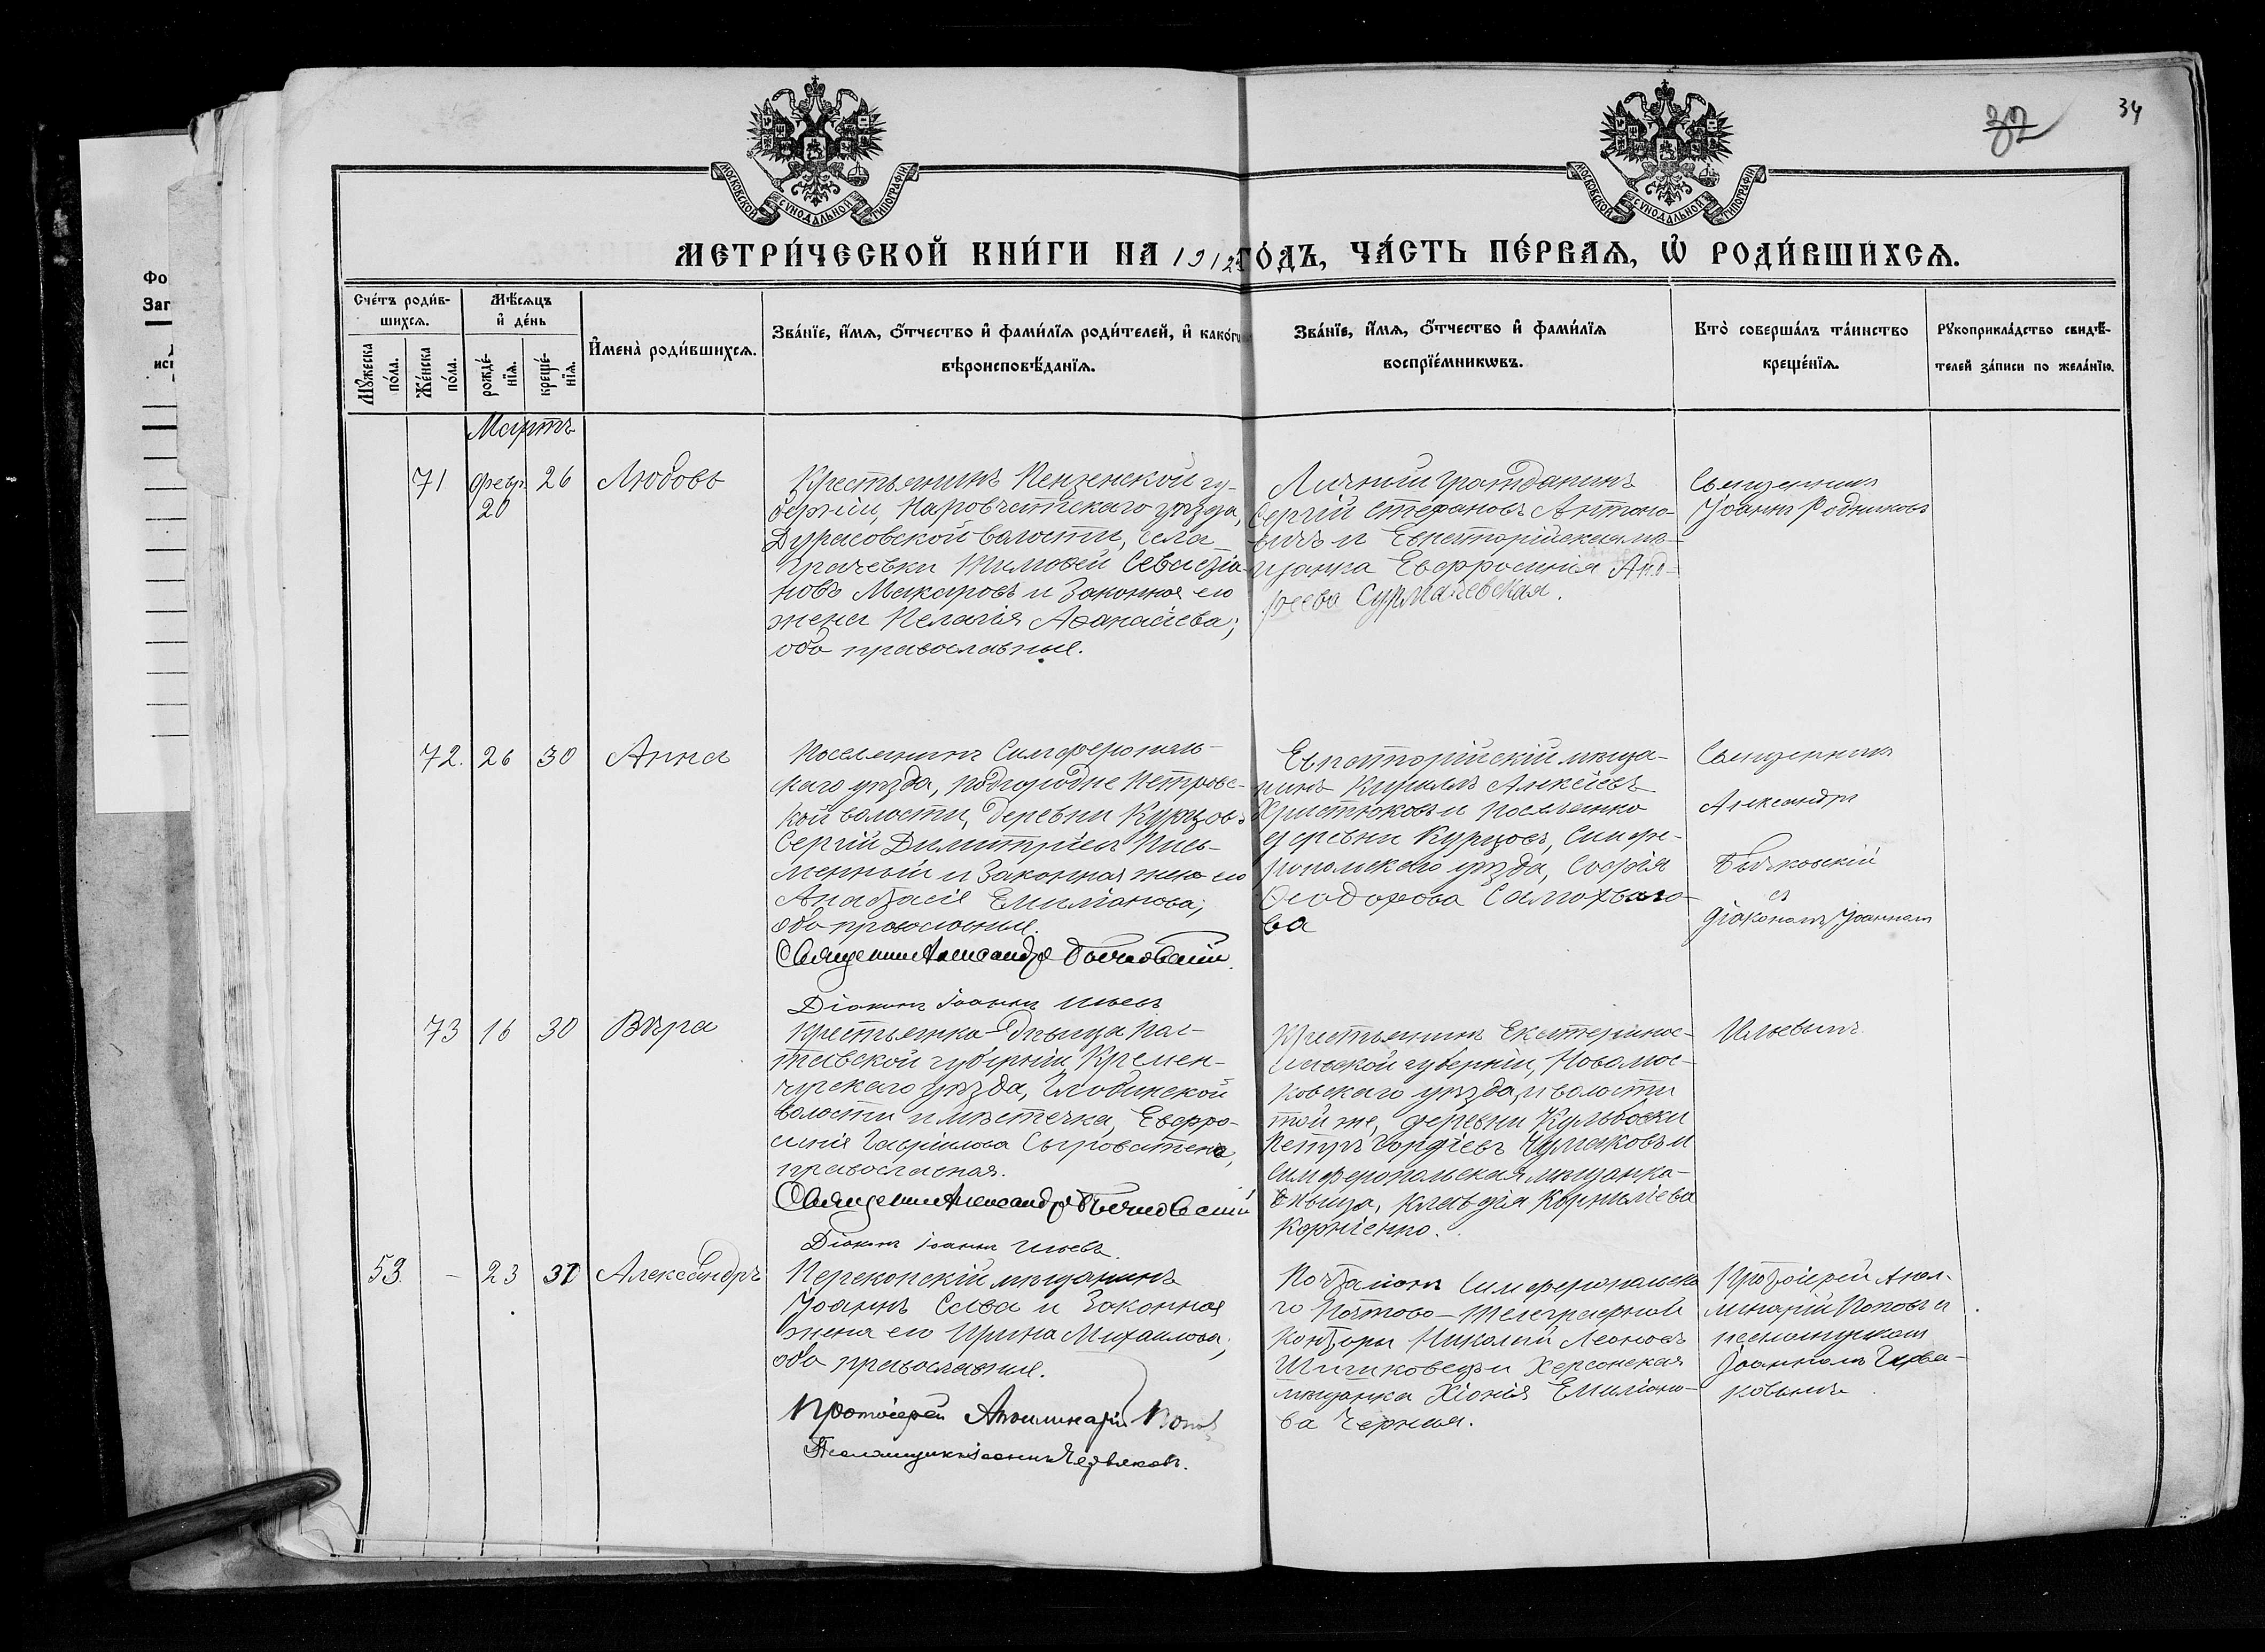 34
32
МОСКОВСКОЙ СѴНОДАЛЬНОЙ ТИПОГРАФІИ
МОСКОВСКОЙ СѴНОДАЛЬНОЙ ТИПОГРАФІИ
МЕТРИ́ЧЕСКОЙ КНИ́ГИ НА 1912 ГО́ДЪ, ЧА́СТЬ ПЕ́РВАѦ, Ѡ҆ РОДИ́ВШИХСѦ.
Сче́тъ роди́в-
шихсѧ.
Мꙋ́жеска
по́ла.
Же́нска
по́ла.
Мѣ́сѧцъ
и҆ де́нь
рожде́-
нїѧ.
креще́-
нїѧ.
И҆мена̀ роди́вшихсѧ.
Зва́нїе, и҆́мѧ, ѻ҆́тчество и҆ фами́лїѧ роди́телей, и҆ како́гѡ
вѣроисповѣ́данїѧ.
Зва́нїе, и҆́мѧ, ѻ҆́тчество и҆ фами́лїѧ
воспрїе́мникѡвъ.
Кто̀ соверша́лъ та́инство
креще́нїѧ.
Рꙋкоприкла́дство свидѣ́-
телей за́писи по жела́нїю.
Фо
Заг
Мартъ
71
Февр.
20
26
Любовь
Крестьянинъ Пензенской гу-
берніи, Наровчатскаго уѣзда,
Дурасовской волости, села
Грачевки Тимофей Севастіа-
новъ Макаровъ и законная его
жена Пелагія Аѳанасіева;
оба православные.
Личный гражданинъ
Сергій Стефановъ Антоно-
вичъ и Евпаторійская мѣ-
щанка Евфросинія Анд-
реева Сурмачевская.
Священникъ
Іоаннъ Родниковъ
72.
26
30
Анна
Поселянинъ Симферополь-
скаго уѣзда, Подгородне Петровс-
кой волости, деревни Курцовъ
Сергій Димитріевъ Пись-
менный и законная жена его
Анастасія Емиліанова;
оба православные.
Священникъ Александръ
Діаконъ Іоаннъ Ильевъ
Евпаторійскій мѣща-
нинъ Кириллъ Алексіевъ
Христюковъ и поселянка
деревни Курцовъ, Симфе-
ропольскаго уѣзда, Софія
Ѳеодорова Самохвало-
ва
Священникъ
Александръ
съ
діакономъ Іоанномъ
73
16
30
Вѣра
Крестьянка-дѣвица Пол-
тавской губерніи, Кремен-
чугскаго уѣзда, Глобинской
волости и мѣстечка, Евфро-
синія Гавріилова Сыроватская,
православная.
Священникъ Александръ
Діаконъ Іоаннъ Ильевъ.
Крестьянинъ Екатеринос-
лавской губерніи, Новомос-
ковскаго уѣзда, и волости
той же, деревни Кульбовки
Петръ Гордіевъ Чумаковъ и
Симферопольская мѣщанка-
дѣвица, Клавдія Корниліева
Корніенко.
Ильевымъ
53.
-
23
31
Александръ
Перекопскій мѣщанинъ
Іоаннъ Савва и законная
жена его Ирина Михаилова;
оба православные.
Протоіерей Аполлинарій Поповъ
Псаломщикъ Іоаннъ Червяковъ.
Почталіонъ Симферопольска-
го Почтово-Телеграфной
Конторы Николай Леонтьевъ
и Херсонская
мѣщанка Хіонія Емиліано-
ва Черная.
Протоіерей Апол-
линарій Поповъ и
псаломщикомъ
Іоанномъ Червя-
ковымъ